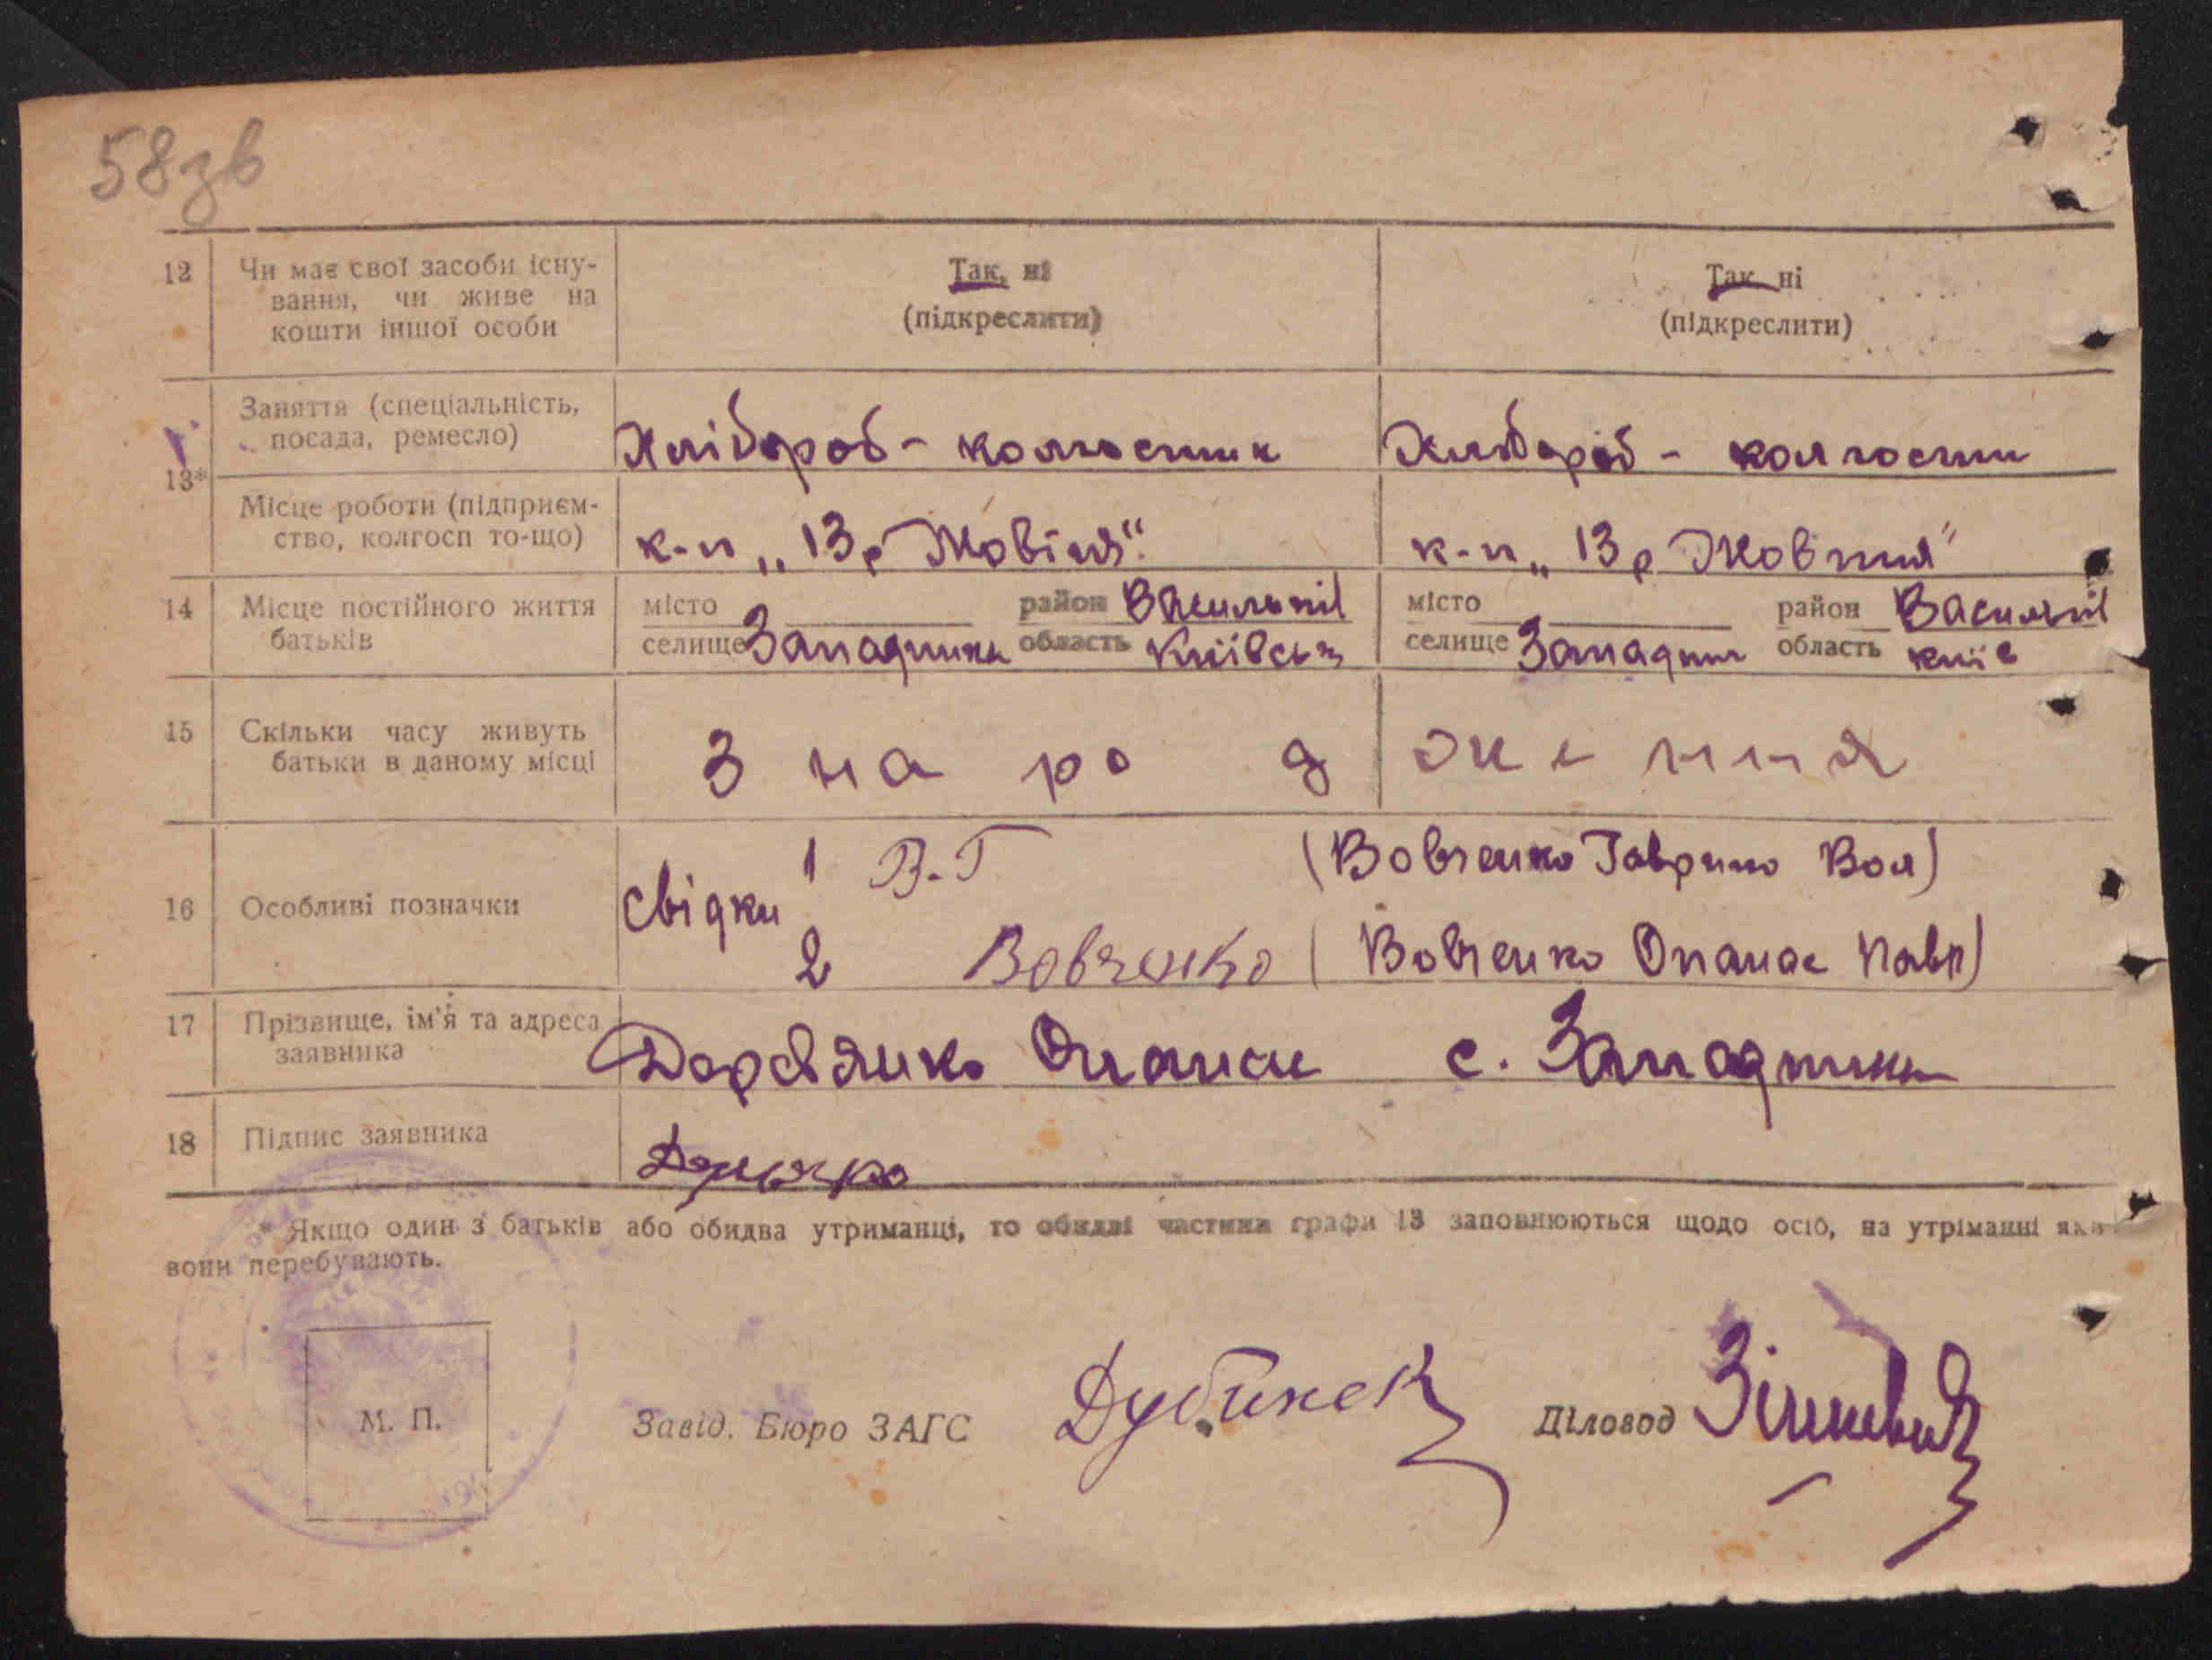 58зв
12 Чи має свої засоби існу- Так, ні Так ні
вання, чи живе на (підкреслити) (підкреслити)
кошти іншої особи
Заняття (спеціальність,
посада, ремесло) Хлібороб - колгоспник Хлібороб - колгоспн
13*
Місце роботи (підприєм-
ство, колгосп то-що) к-п „13 р Жовтня". к-п „13 р Жовтня"
14 Місце постійного життя місто район Васильків місто район Васильків
батьків селище Западинка область Київськ селище Западин область Київ
15 Скільки часу живуть
батьки в даному місці З на ро д же ння
1 В.Г (Вовченко Гаврило Вол)
16 Особливі позначки свідки
2 Вовченко (Вовченко Опанас Павл)
17 Прізвище, ім'я та адреса
заявника Дерев'янко Опанас с. Западинка
18 Підпис заявника
* Якщо один з батьків або обидва утриманці, то обидві частини графи 13 заповнюються щодо осіб, на утріманні яки
вони перебувають.
М. П. Завід. Бюро ЗАГС Діловод